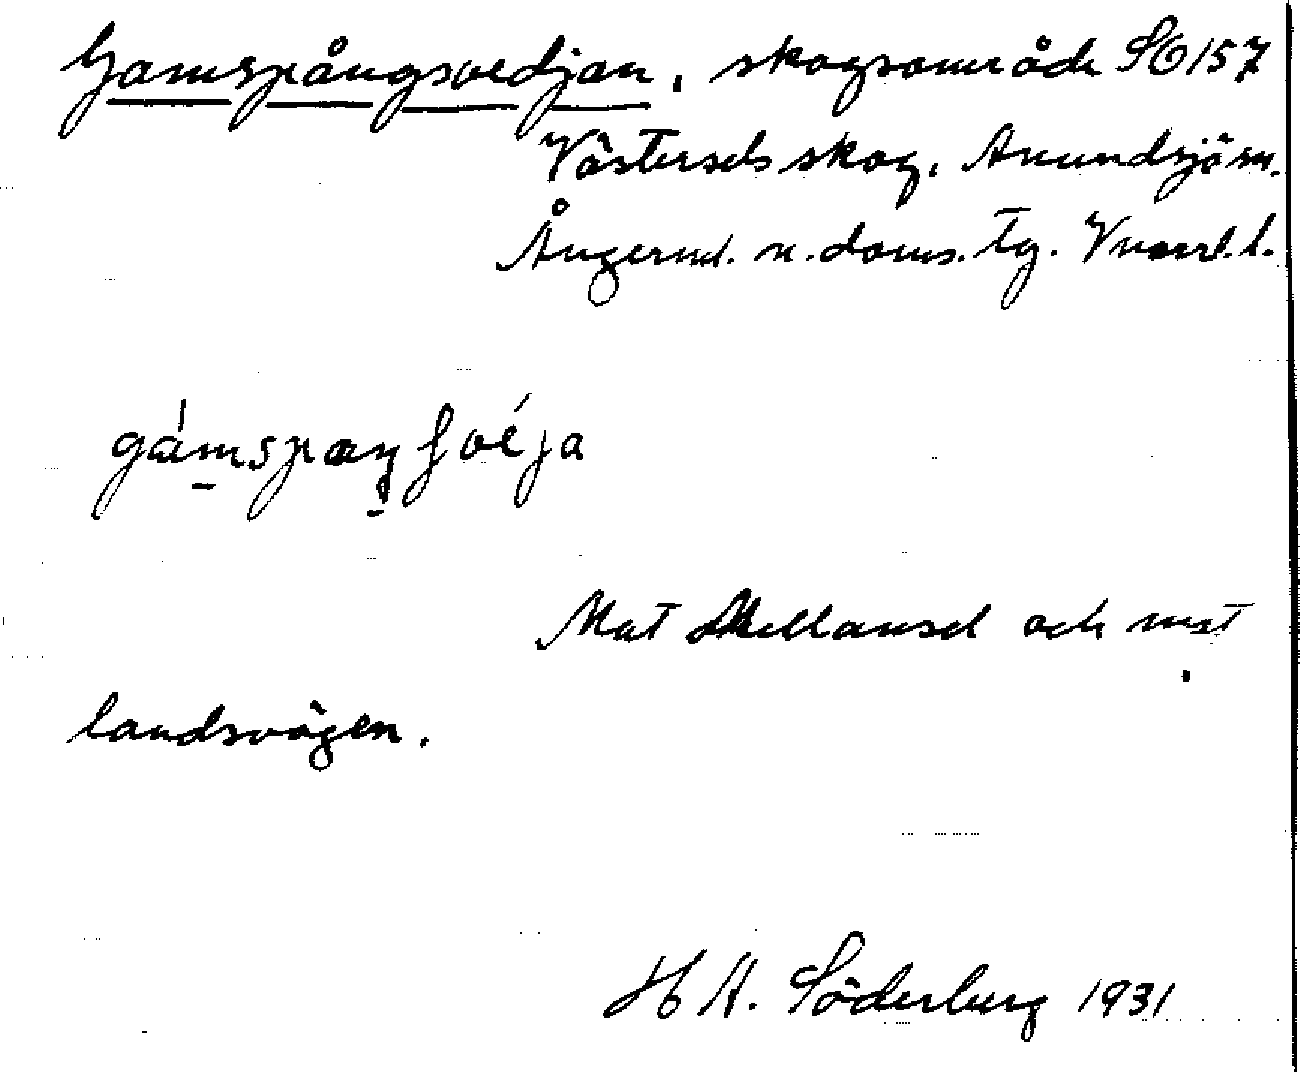 Gamspångsvedjan, skogsområde SO 157
Västersels skog, Anundsjö sn.
Ångerml. n. doms. tg. Vnorrl. l.
gámspaŋʃvéja
Mot Mellansel och mot
landsvägen.
H A. Söderberg 1931